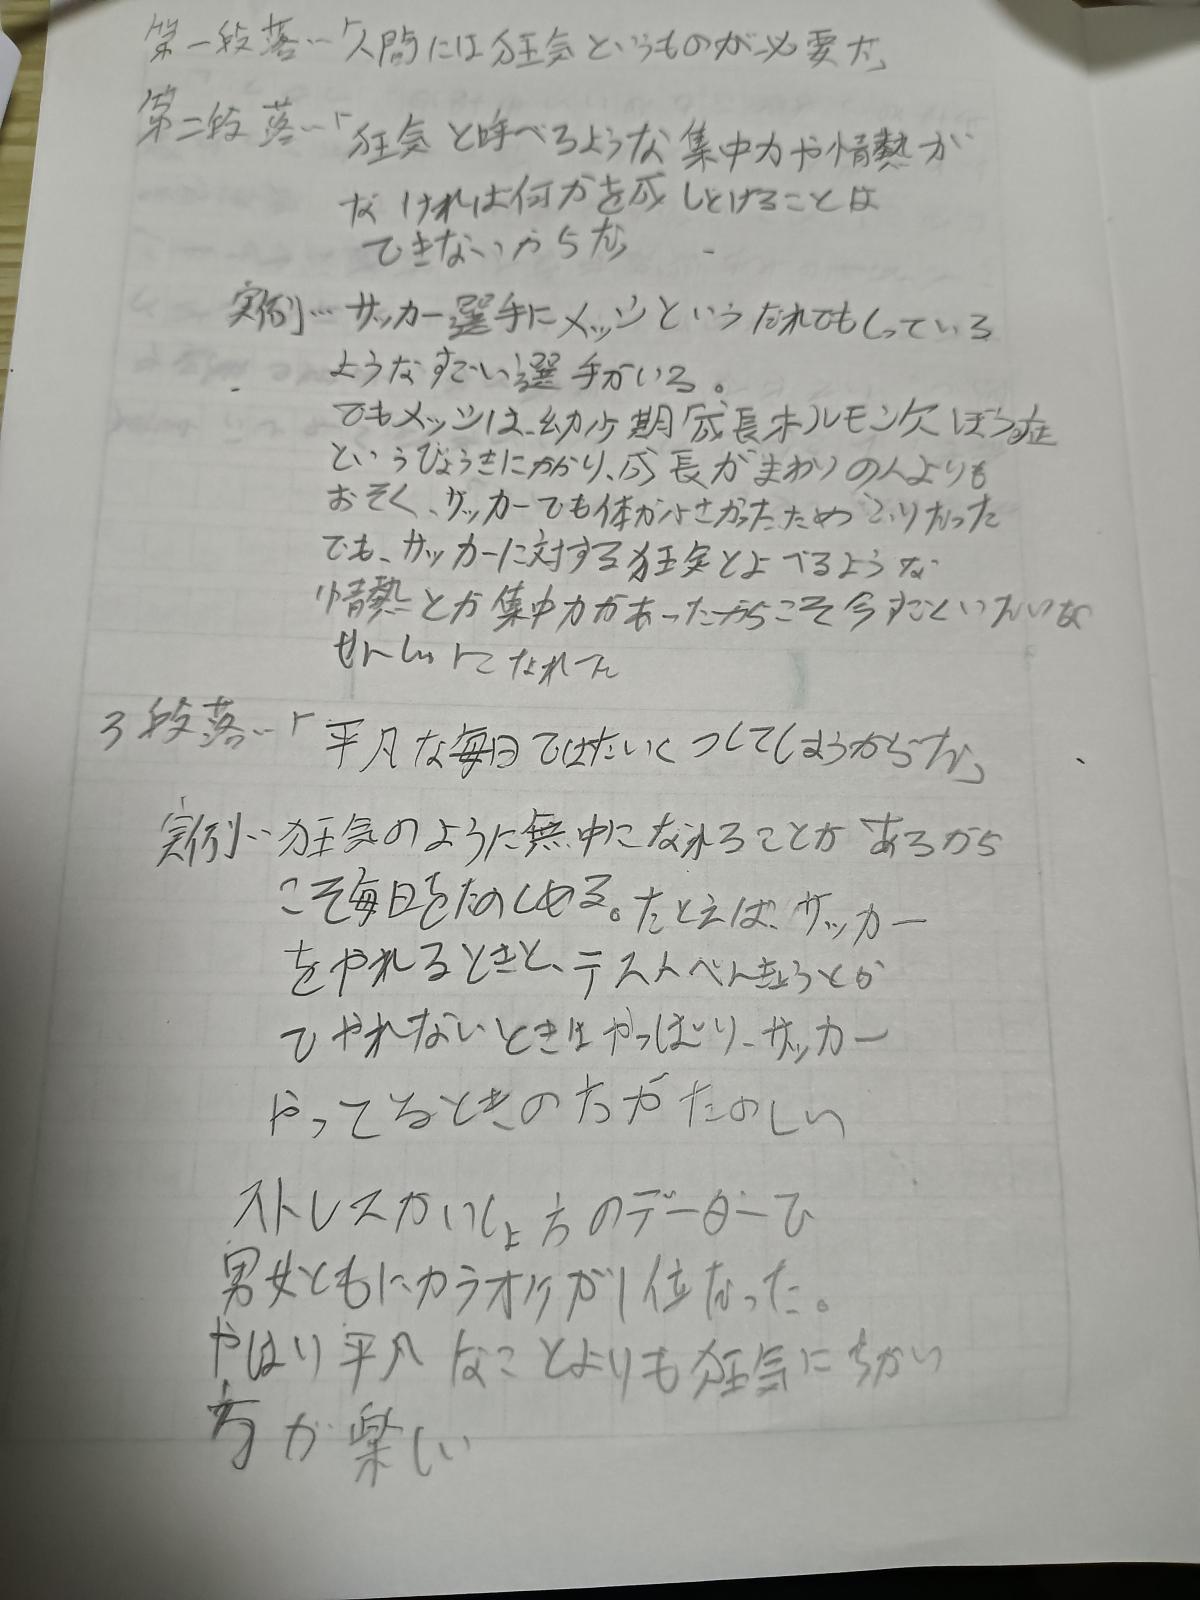 第一段落…「人間には狂気というものが必要だ」
第二段落…「狂気と呼べるような集中力や情熱が
なければ何かを成しとげることは
できないからだ」
実例…サッカー選手にメッシというだれでもしっている
ようなすごい選手がいる。
でもメッシは、幼少期「成長ホルモン欠ぼう症
というびょうきにかかり、成長がまわりの人よりも
おそく、サッカーでも体が小さかったためふりだった
でも、サッカーに対する狂気とよべるような
情熱とか集中力があったからこそ今すごくいだいな
せんしゅになれた
3段落…「平凡な毎日ではたいくつしてしまうからだ」
実例…狂気のように無中になれることがあるから
こそ毎日をたのしめる。たとえば、サッカー
をやれるときと、テストべんきょうとか
でやれないときはやっぱり、サッカー
やってるときの方がたのしい
ストレスかいしょ方のデーターで
男女ともにカラオケが1位なった。
やはり平凡なことよりも狂気にちかい
方が楽しい